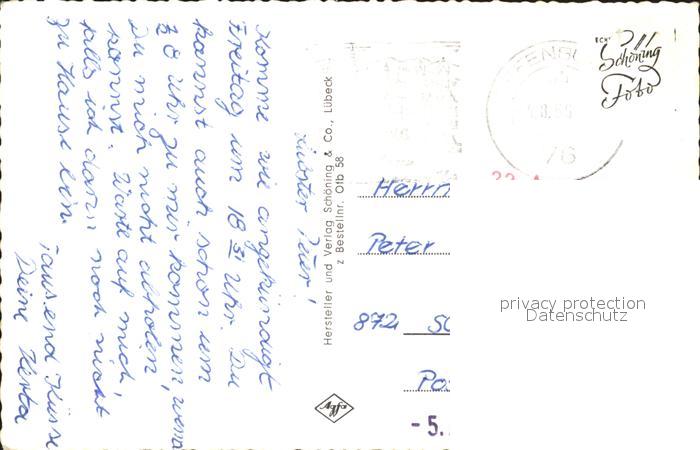 Liebster Peter!
Komme wie angekündigt
Freitag um 18 51 Uhr. Du
kannst auch schon um
Uhr zu mir kommen, wenn
Du mich nicht abholen
kannst. Warte auf mich,
falls ich dann noch nicht
zu Hause bin.
Tausend Küsse
Deine
Hersteller und Verlag Schöning & Co., Lübeck
z Bestellnr. Otb 58
Schöning
Foto
76
Herrn
Peter
872
Agfa
- 5.
privacy protection
Datenschutz